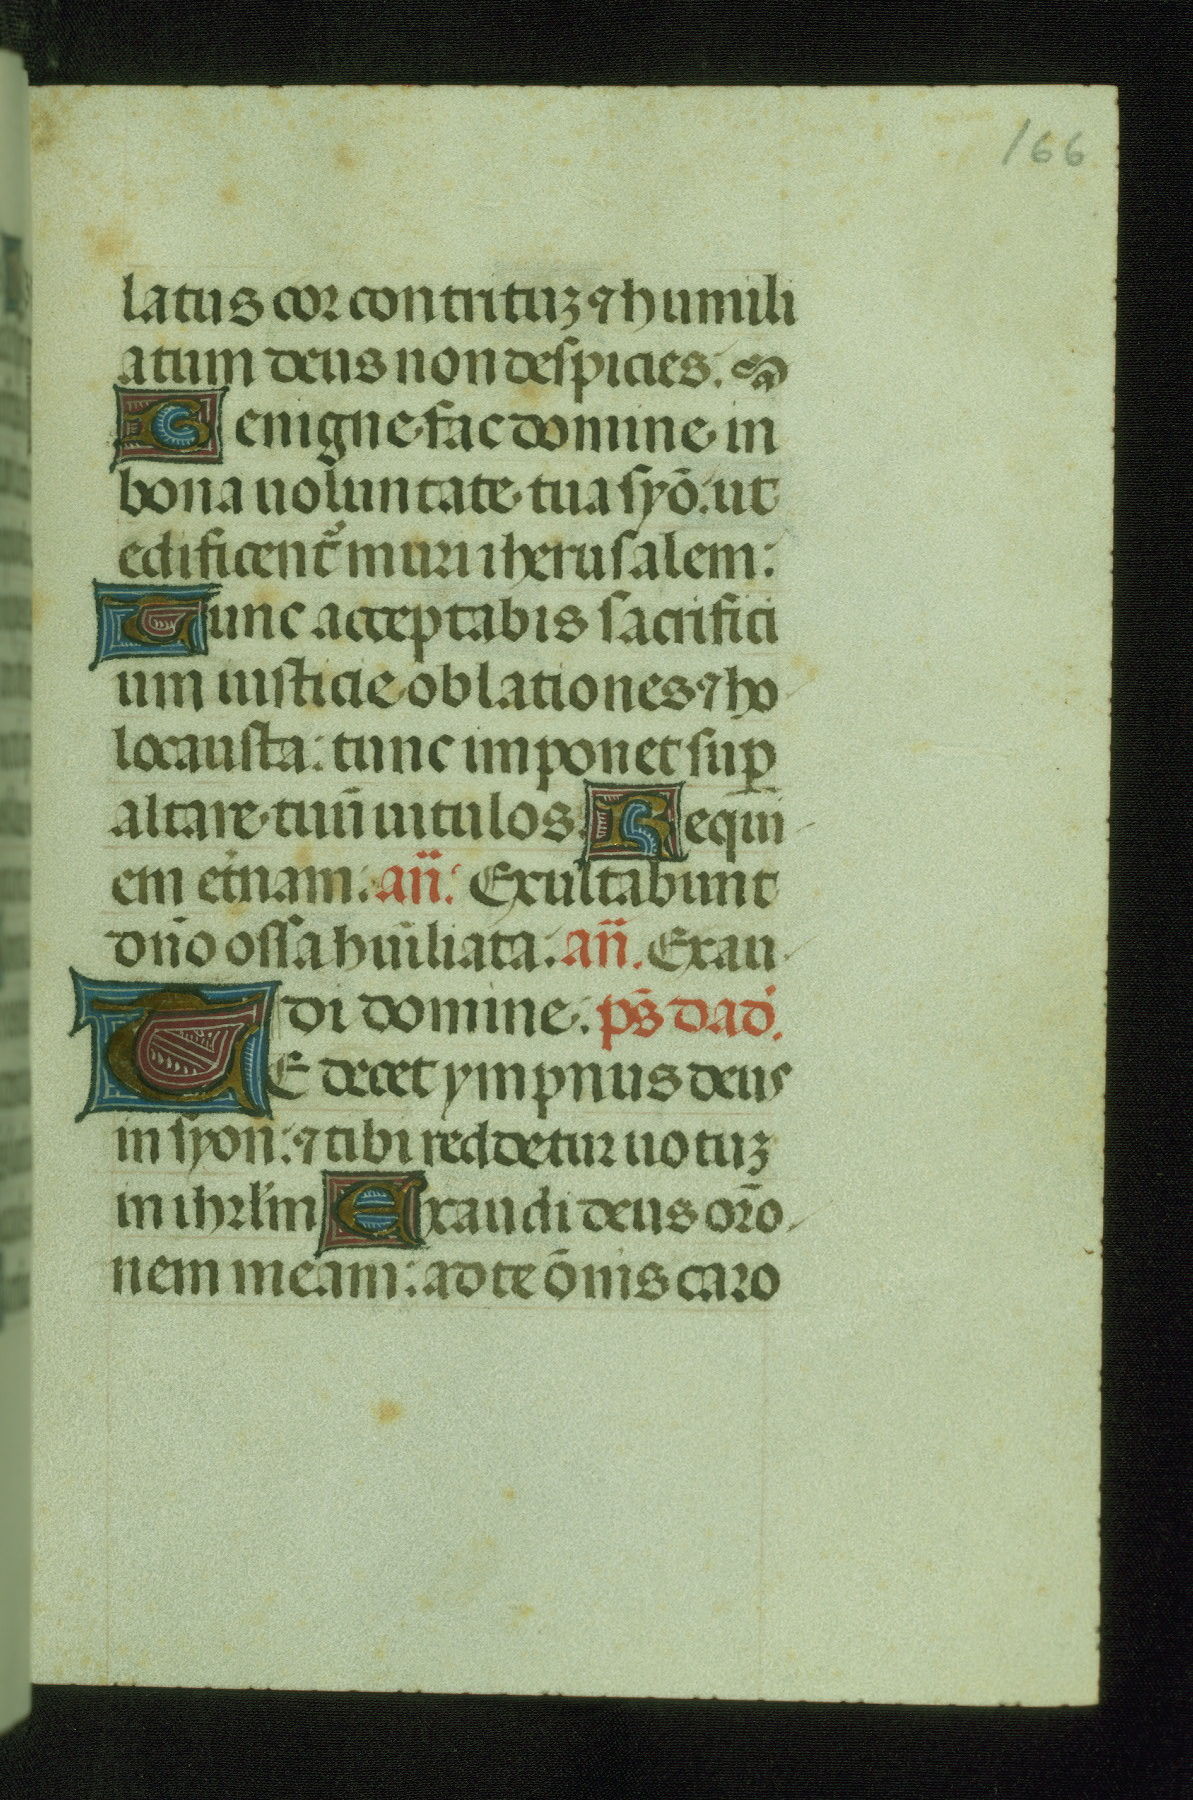 166
latus cor contrituꝫ ⁊ humili
atum deus non despicies.
Benigne fac domine in
bona uoluntate tua syō. ut
edificent᷑ muri iherusalem:
Tunc acceptabis sacrifici
um iusticie oblationes ⁊ ho
locausta: tunc imponet suꝑ
altare tuū uitulos. Requi
em et̾nam. an̄. Exultabunt
dn̄o ossa humiliata. an̄. Exau
di domine. ps̄ dad̾.
TE decet ympnus deus
in syon: ⁊ tibi reddetur uotuꝫ
in ihrl̄m Exaudi deus or̄o
nem meam: ad te ōnis caro